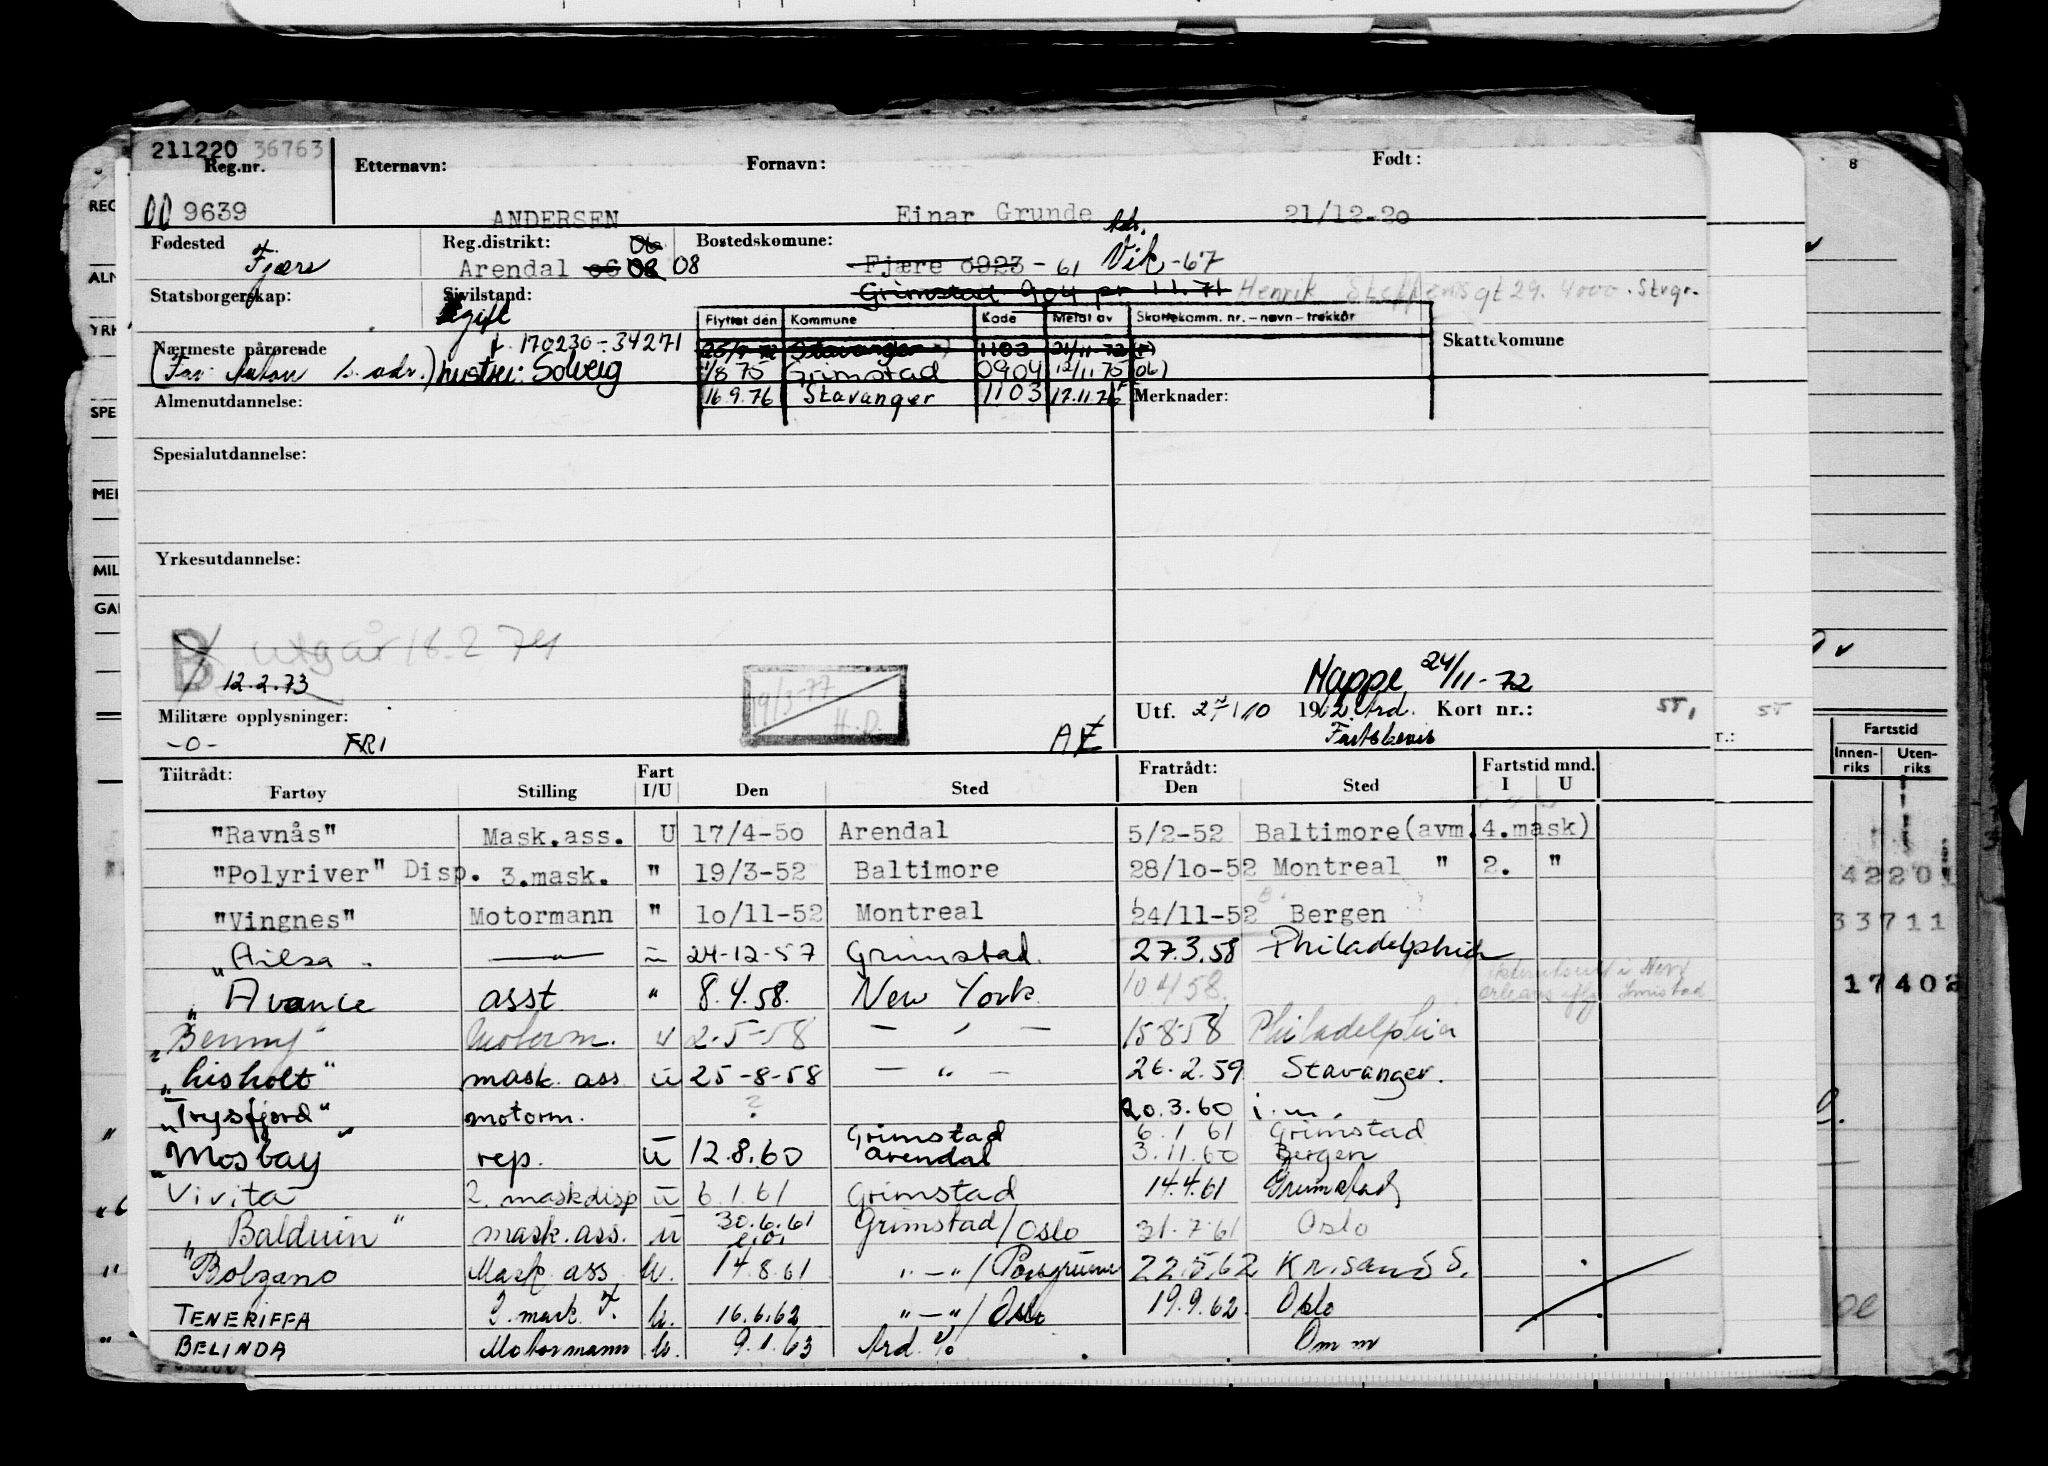 211220 36763
Reg.nr. Etternavn: Fornavn: Født:
00 9639 ANDERSEN Einar Grunde 21/12-20
Fødested Reg.distrikt: Bostedskomune:
Fjære Arendal 08 Fjære 0923 - 61 Vik -67
Statsborgerskap: Sivilstand: Grimstad 904 pr 11.71 Henrik Steffens gt 29. 4000. Stvgr.
gift
Flyttet den Kommune Kode Meldt av Skattekomm. nr. – navn – trekkår
Nærmeste pårørende 170230-34271 Stavanger 1103 21/11-72 Skattekomune
(Far: Anton s. adr.) hustru: Solveig 1/8 75 Grimstad 0904 12/11.75
Almenutdannelse: 16.9.76 Stavanger 1103 17.11.76 Merknader:
Spesialutdannelse:
Yrkesutdannelse:
B utgår 18.2 74
12.2.73 19/3-77 Mappe 24/11-72
H.D.
Militære opplysninger: Utf. 2/10 1962 Ard. Kort nr.: 55,
-0- FRI
Tiltrådt: Fart Fratrådt: Fartstid mnd.
Fartøy Stilling I/U Den Sted Den Sted I U
"Ravnås" Mask.ass. U 17/4-50 Arendal 5/2-52 Baltimore(avm.4.mask)
"Polyriver" Disp. 3.mask. " 19/3-52 Baltimore 28/10-52 Montreal " 2. "
"Vingnes" Motormann " 10/11-52 Montreal 24/11-52 Bergen
"Ailsa — " — 24-12-57 Grimstad. 27.3.58 Philadelphia
"Avance asst " 8.4.58. New York 10.4.58.
"Benny" Motorm. u 2-5-58 — " — 15858 Philadelphia
"Lisholt" mask. ass u 25-8-58 — " — 26.2.59 Stavanger.
"Trysfjord" motorm. ? 20.3.60 i.m.
Grimstad 6.1 61 Grimstad
"Mosbay" rep. u 12.8.60 Arendal 3.11.60 Bergen
Vivita 2. maskdisp u 6.1.61 Grimstad 14.4.61 Grimstad
"Balduin" mask.ass. u 30.6.61 Grimstad/Oslo 31.7.61 Oslo
"Bolzano Mask. ass u. 14.8.61 " — " / Porsgrunn 22.5.62 Kr.sand S.
TENERIFFA 2. mask. F. u. 16.6.62 " — " / Oslo 19.9.62. Oslo
BELINDA Motormann u. 9.1.63 Ard. Om m
8
REG
ALM
YRK
SPE
MER
MIL
GAI
55
r.:
Fartstid
Innen-riks Uten-riks
4220
33711
17402